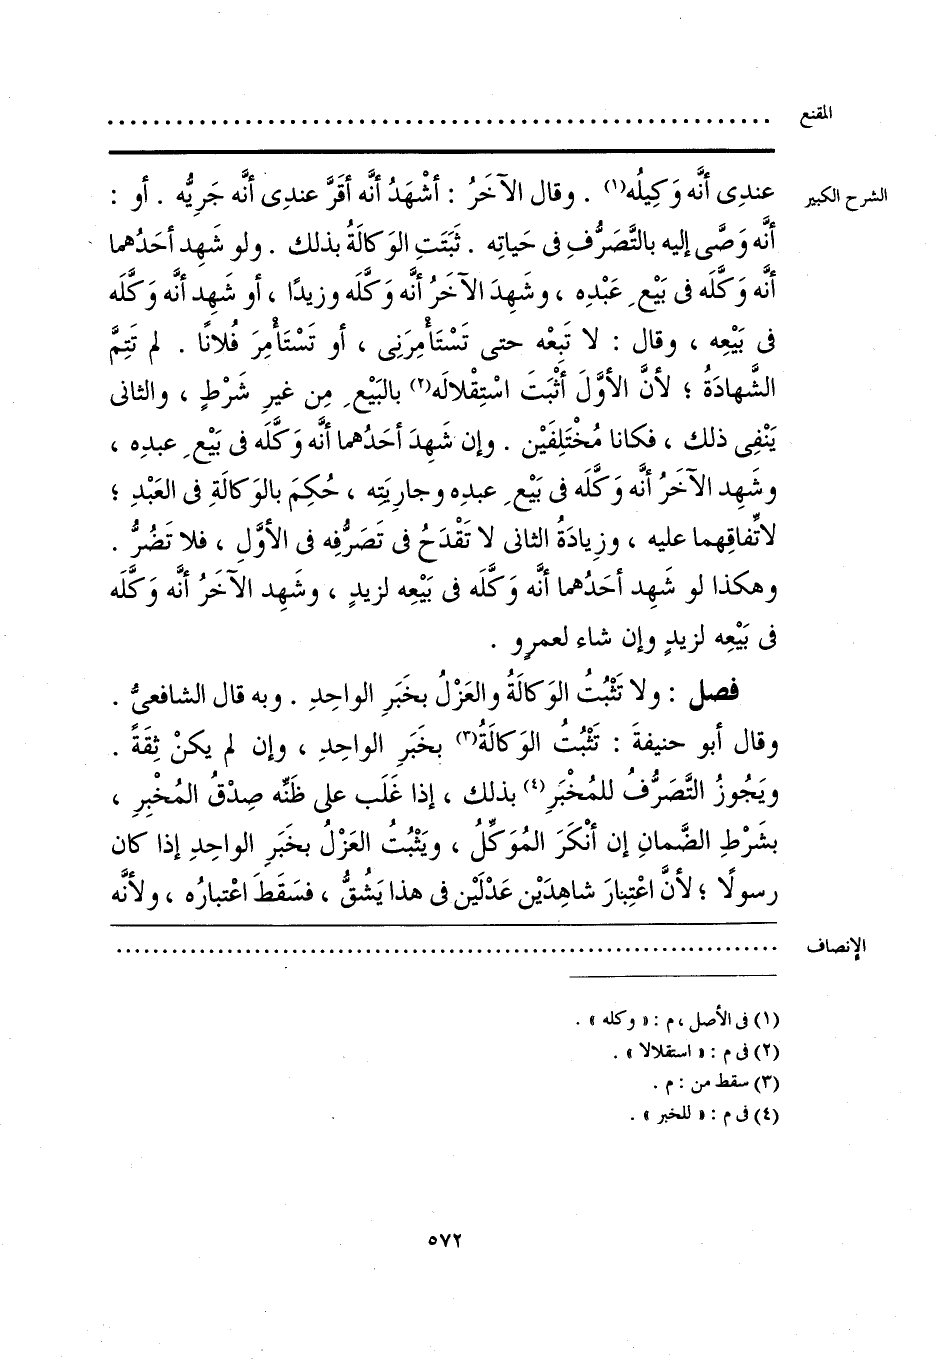 المقنع ........................................................
الشرح الكبير عندِى أنَّه وَكِيلُه(١) . وقال الآخَرُ : أشْهَدُ أنَّه أقَرَّ عندِى أنَّه جَرِيُّه . أو :
أنَّه وَصَّى إليه بالتَّصَرُّفِ فى حَياتِه . ثَبَتَتِ الوَكالَةُ بذلك . ولو شَهِد أحَدُهما
أنَّه وَكَّلَه فى بَيْعِ عَبْدِه ، وشَهِدَ الآخَرُ أنَّه وَكَّلَه وزيدًا ، أو شَهِد أنَّه وَكَّلَه
فى بَيْعِه ، وقال : لا تَبِعْه حتى تَسْتَأْمِرَنِى ، أو تَسْتَأْمِرَ فُلانًا . لم تَتِمَّ
الشَّهادَةُ ؛ لأنَّ الأوَّلَ أثْبَتَ اسْتِقْلالَه(٢) بالبَيْعِ مِن غيرِ شَرْطٍ ، والثانى
يَنْفِى ذلك ، فكانا مُخْتَلِفَيْن . وإن شَهِدَ أحَدُهما أنَّه وَكَّلَه فى بَيْعِ عبدِه ،
وشَهِد الآخَرُ أنَّه وَكَّلَه فى بَيْعِ عبدِه وجارِيَتِه ، حُكِمَ بالوَكالَةِ فى العَبْدِ ؛
لاتِّفاقِهما عليه ، وزِيادَةُ الثانى لا تَقْدَحُ فى تَصَرُّفِه فى الأوَّلِ ، فلا تَضُرُّ .
وهكذا لو شَهِد أحَدُهما أنَّه وَكَّلَه فى بَيْعِه لزيدٍ ، وشَهِد الآخَرُ أنَّه وَكَّلَه
فى بَيْعِه لزيدٍ وإن شاء لعمرٍو .
فصل : ولا تَثْبُتُ الوَكالَةُ والعَزْلُ بخَبَرِ الواحِدِ . وبه قال الشافعىُّ .
وقال أبو حنيفةَ : تَثْبُتُ الوَكالَةُ(٣) بخَبَرِ الواحِدِ ، وإن لم يكنْ ثِقَةً .
ويَجُوزُ التَّصَرُّفُ للمُخْبَرِ(٤) بذلك ، إذا غَلَب على ظَنِّه صِدْقُ المُخْبِرِ ،
بشَرْطِ الضَّمانِ إن أنْكَرَ المُوَكِّلُ ، ويَثْبُتُ العَزْلُ بخَبَرِ الواحِدِ إذا كان
رسولًا ؛ لأنَّ اعْتِبارَ شاهِدَيْن عَدْلَيْن فى هذا يَشُقُّ ، فسَقَطَ اعْتبارُه ، ولأنَّه
الإنصاف ........................................................
(١) فى الأصل ، م : « وكله » .
(٢) فى م : « استقلالا » .
(٣) سقط من : م .
(٤) فى م : « للخبر » .
٥٧٢